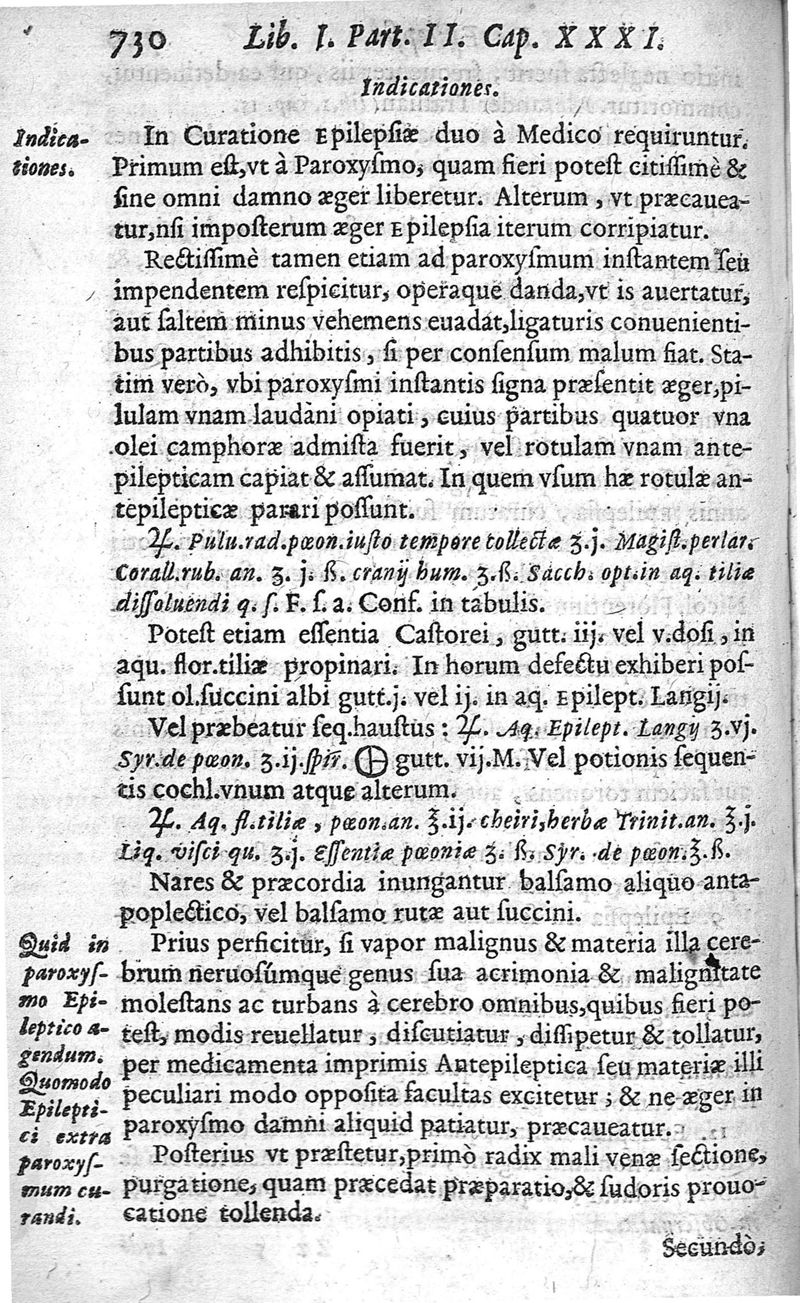 730 Lib. I. Part. II. Cap. XXXI.
Indicationes.
Indica-
tiones.
In Curatione Epilepsiæ duo à Medico requiruntur.
Primum eſt,vt à Paroxyſmo, quam fieri poteſt citiſſimè &
ſine omni damno æger liberetur. Alterum , vt præcauea-
tur,nſi impoſterum æger Epilepſia iterum corripiatur.
Rectiſſimè tamen etiam ad paroxyſmum inſtantem ſeu
impendentem reſpicitur, operaque danda,vt is auertatur,
aut ſaltem minus vehemens euadat,ligaturis conuenienti-
bus partibus adhibitis , ſi per conſenſum malum fiat. Sta-
tim verò, vbi paroxyſmi inſtantis ſigna præſentit æger,pi-
lulam vnam laudàni opiati , cuius partibus quatuor vna
olei camphoræ admiſta fuerit , vel rotulam vnam ante-
pilepticam capiat & aſſumat. In quem vſum hæ rotulæ an-
tepilepticæ parari poſſunt.
♃. Pulu.rad.pœon.iuſto tempore collectæ ʒ.j. Magiſt.perlar.
Corall.rub. an. ʒ. j. ß. cranij hum. ʒ.ß. Sacch. opt.in aq. tiliæ
diſſoluendi q. ſ. F. ſ. a. Conf. in tabulis.
Poteſt etiam eſſentia Caſtorei , gutt. iij. vel v.doſi , in
aqu. flor.tiliæ propinari. In horum defectu exhiberi poſ-
ſunt ol.ſuccini albi gutt.j. vel ij. in aq. Epilept. Langij.
Vel præbeatur ſeq.hauſtus : ♃. Aq. Epilept. Langij ʒ.vj.
Syr.de pœon. ʒ.ij.ſpir. 🜕 gutt. vij.M. Vel potionis ſequen-
tis cochl.vnum atque alterum.
♃. Aq. fl.tiliæ , pœon.an. ℥.ij. cheiri,herbæ Trinit.an. ℥.j.
Liq. viſci qu. ʒ.j. Eſſentiæ pœoniæ ʒ. ß. Syr. de pœon.℥.ß.
Nares & præcordia inungantur balſamo aliquo anta-
poplectico, vel balſamo rutæ aut ſuccini.
Quid in
paroxyſ-
mo Epi-
leptico a-
gendum.
Prius perficitur, ſi vapor malignus & materia illa cere-
brum neruoſúmque genus ſua acrimonia & malignitate
moleſtans ac turbans à cerebro omnibus,quibus fieri po-
teſt, modis reuellatur , diſcutiatur , diſſipetur & tollatur,
per medicamenta imprimis Antepileptica ſeu materiæ illi
peculiari modo oppoſita facultas excitetur ; & ne æger in
paroxyſmo damni aliquid patiatur, præcaueatur.
Quomodo
Epilepti-
ci extra
paroxyſ-
mum cu-
randi.
Poſterius vt præſtetur,primò radix mali venæ ſectione,
purgatione, quam præcedat præparatio,& ſudoris prouo-
catione tollenda.
Secundò,